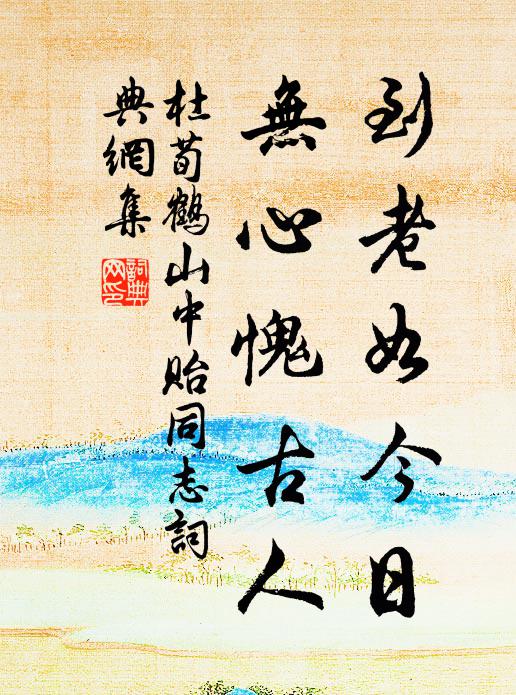 到老如今日
無心愧古人
杜荀鶴山中貽同志詞
典網集
詞典
网印